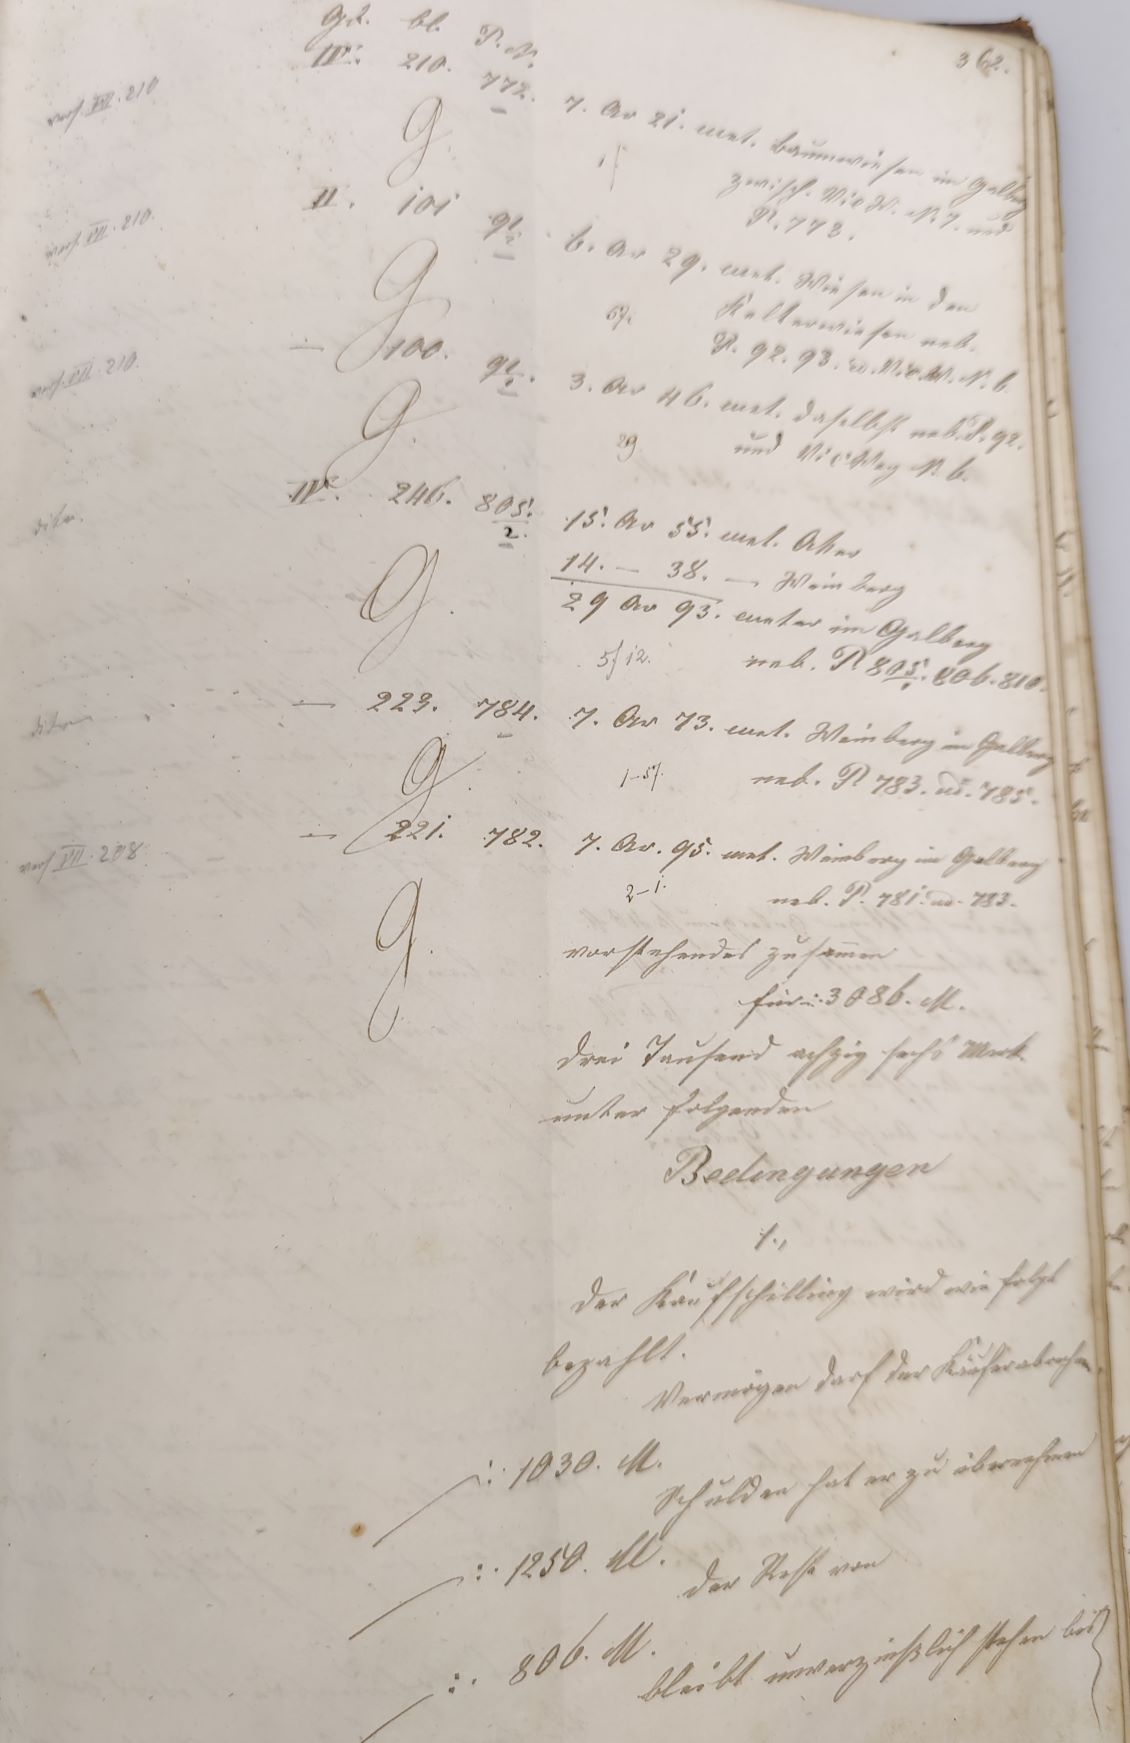 362.
Gd. bl. P. N.
IV. 210. 772. 7. Ar 21. met. Baumwiesen im Galberg
VII. 210
zwisch. Vic W. N. 7. und
P. 773.
II. 101 91/2 6. Ar 29. met. Wiesen in den
VII. 210.
Kelterwiesen neb.
P. 92. 93. u. Vic. W. N. 6.
— 100. 91/1. 3. Ar 46. met. daselbst neb. P. 92.
VII. 210.
29 und Vic Weg N. 6.
IV. 246. 805/2. 15. Ar 55. met. Aker
dito.
14. — 38. — Weinberg
29 Ar 93. meter im Galberg
5/12. neb. P. 805/1. 806. 810.
— 223. 784. 7. Ar 73. met. Weinberg im Galberg
dito
1-5/. neb. P. 783. u. 785.
— 221. 782. 7. Ar. 95. met. Weinberg im Galberg
VII. 208.
2-1. neb. P. 781. u. 783.
vorstehendes zusamen
für :. 3086. M.
drei Tausend achzig sechs Mark.
unter folgenden
Bedingungen
1.,
Der Kaufschilling wird wie folgt
bezahlt.
Vermögen darf der Käufer abrechnen
:. 1030. M.
Schulden hat er zu übernehmen
:. 1250. M.
Der Rest von
:. 806. M.
bleibt unverzinslich stehen bis